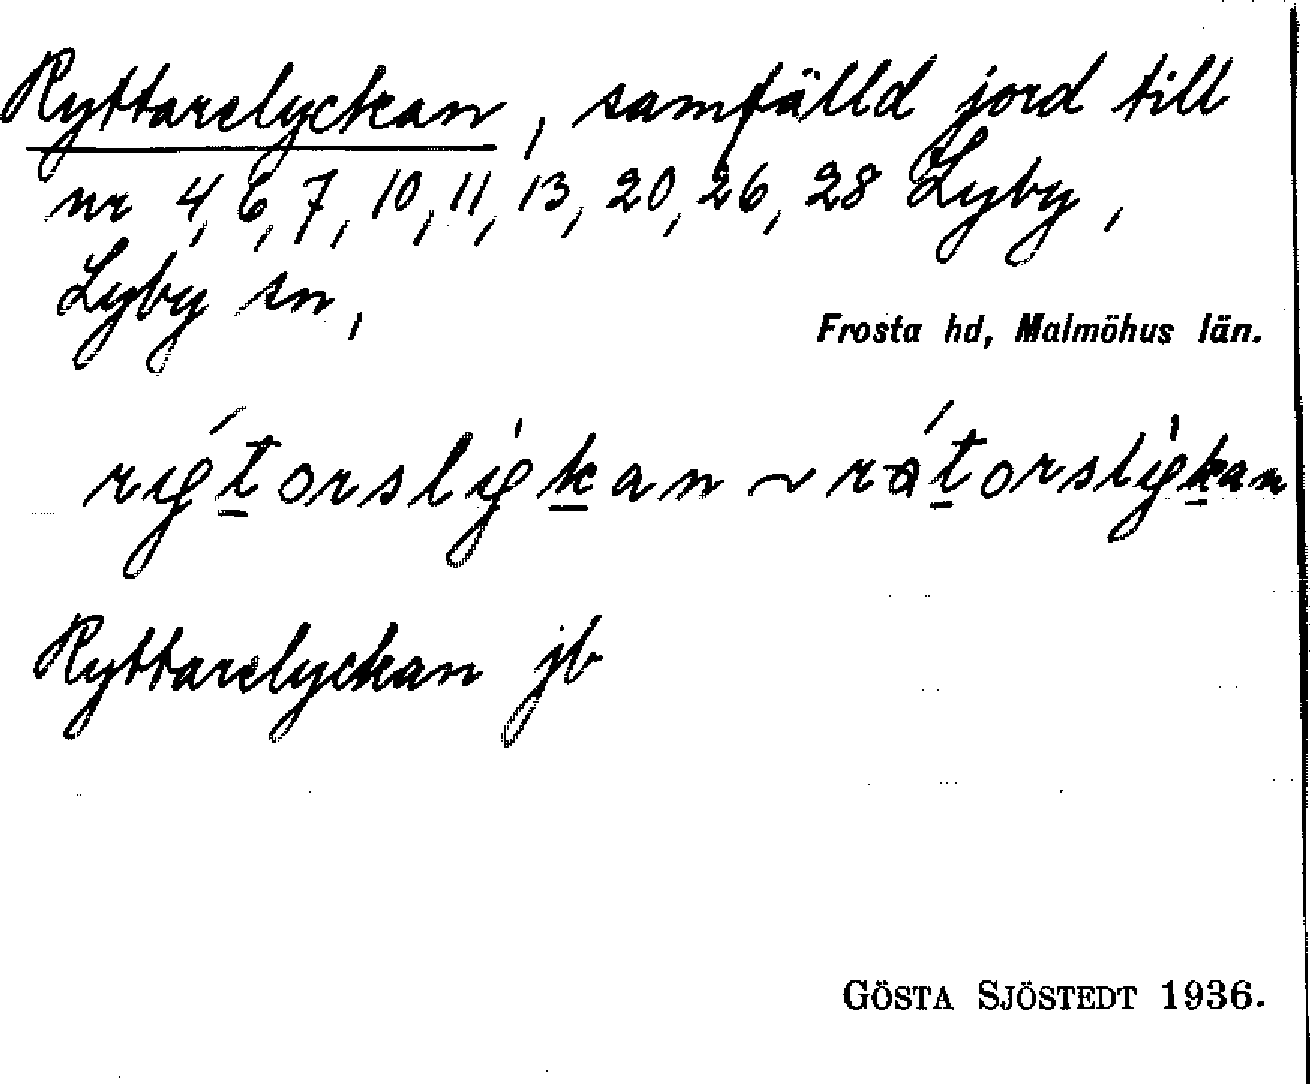 Ryttarelyckan, samfälld jord till
nr 4, 6, 7, 10, 11, 13, 20, 26, 28 Lyby,
Lyby sn,
Frosta hd, Malmöhus län.
Ryttarelyckan jb
GÖSTA SJÖSTEDT 1936.